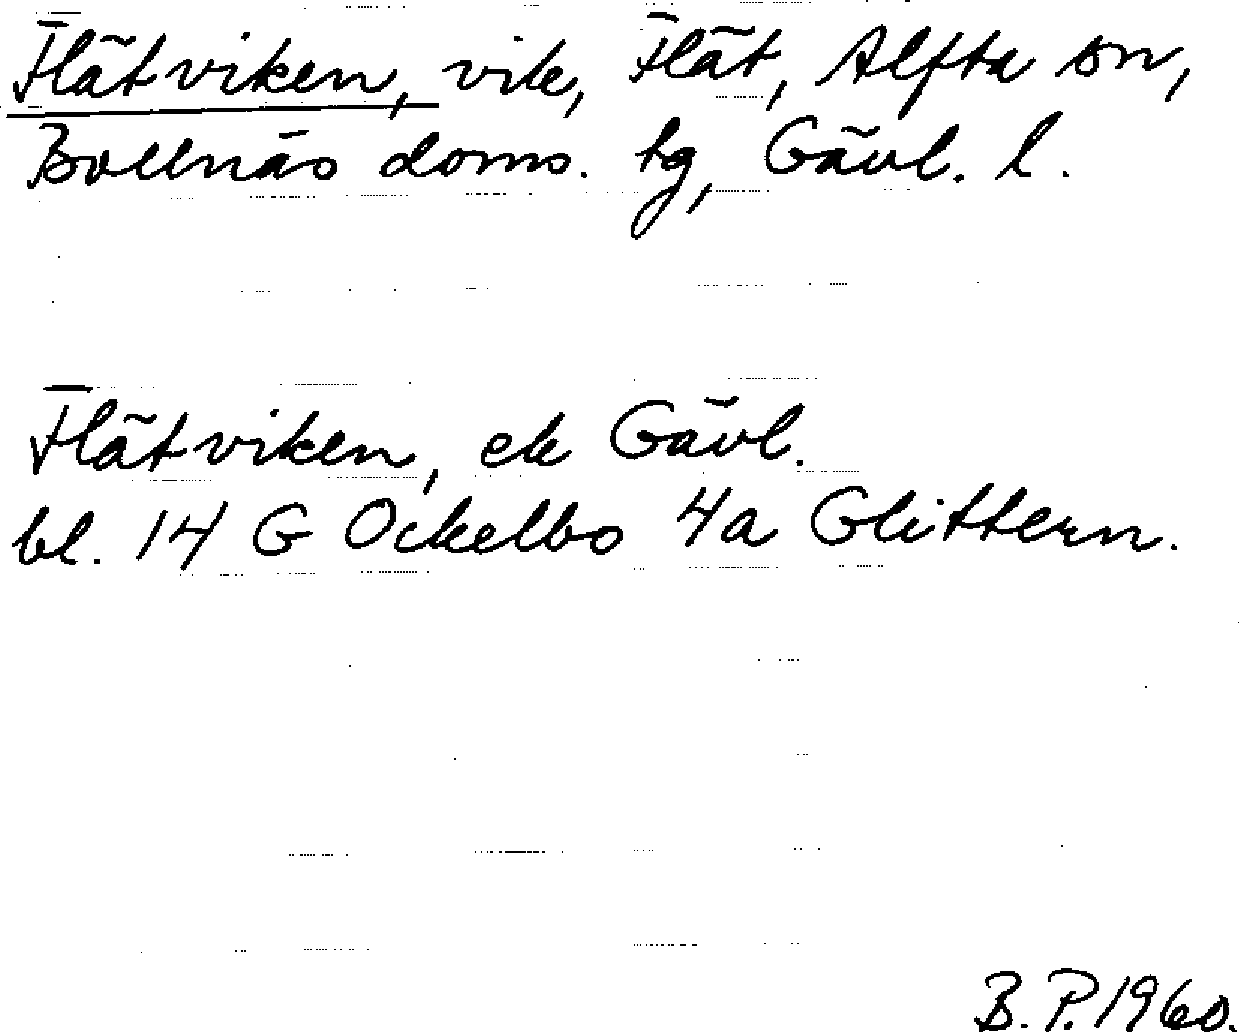 Flätviken, vik, Flät, Alfta sn,
Bollnäs doms. tg, Gävl. l.
Flätviken, ek Gävl.
bl. 14 G Ockelbo 4a Glittern.
B. P. 1960.